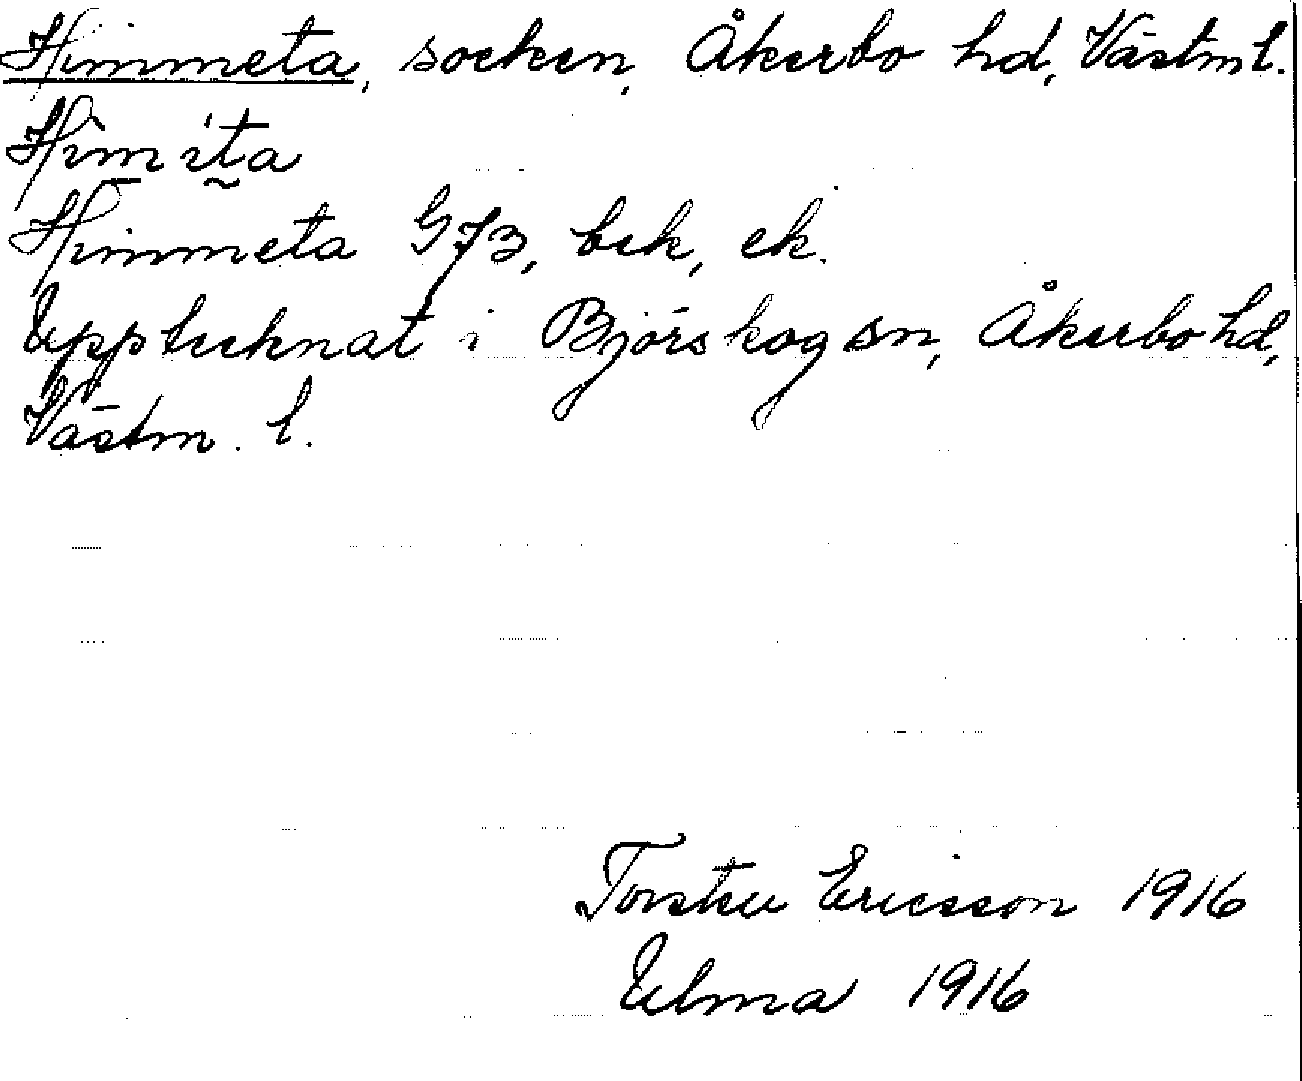 Himmeta, socken, Åkerbo hd, Västml.
Him ita
Himmeta GJB, bek, ek.
Upptecknat i Björskog sn, Åkerbo hd,
Västm. l.
Torsten Ericsson 1916
Ulma 1916